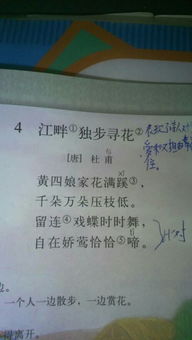 4 江畔①独步寻花②
[唐] 杜甫
fǔ
黄四娘家花满蹊③，
xī
千朵万朵压枝低。
留连④戏蝶时时舞，
自在娇莺恰恰⑤啼。
tí
表达了诗人对
对
一个人一边散步，一边赏花。
得离开。